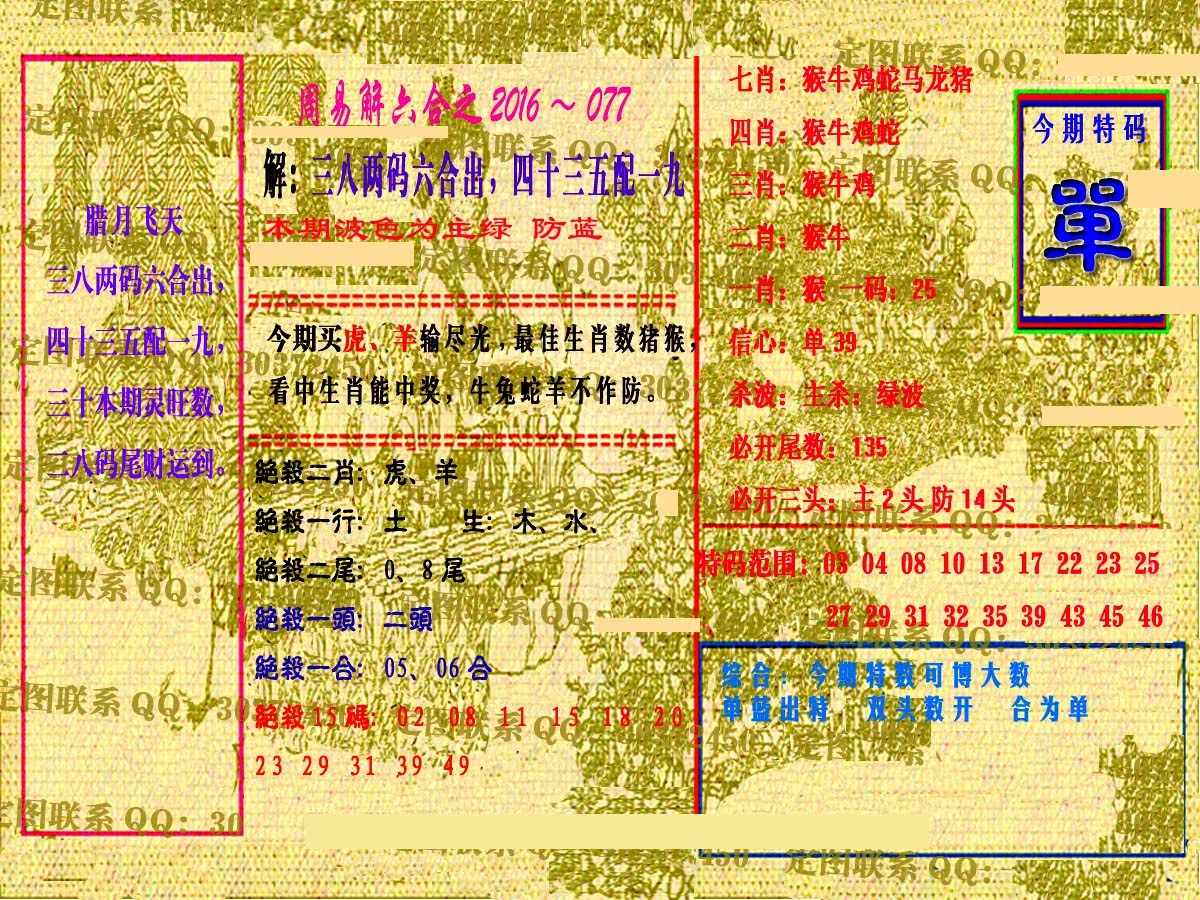 周易解六合之2016～077
解：三八两码六合出，四十三五配一九
本期波色为主绿 防蓝
腊月飞天
三八两码六合出，
四十三五配一九，
三十本期灵旺数，
二八码尾财运到。
今期买虎、羊输尽光，最佳生肖数猪猴，
看中生肖能中奖，牛兔蛇羊不作防。
絕殺二肖：虎、羊
絕殺一行：土 生：木、水、
絕殺二尾：0、8尾
絕殺一頭：二頭
絕殺一合：05、06合
絕殺15碼：02 08 11 15 18 20
23 29 31 39 49
七肖：猴牛鸡蛇马龙猪
四肖：猴牛鸡蛇
三肖：猴牛鸡
二肖：猴牛
一肖：猴 一码：25
信心：单39
杀波：主杀：绿波
必开尾数：135
必开三头：主2头防14头
今期特码
單
特码范围：03 04 08 10 13 17 22 23 25
27 29 31 32 35 39 43 45 46
综合：今期特数可博大数
单蓝出特 双头数开 合为单
定图联系QQ：